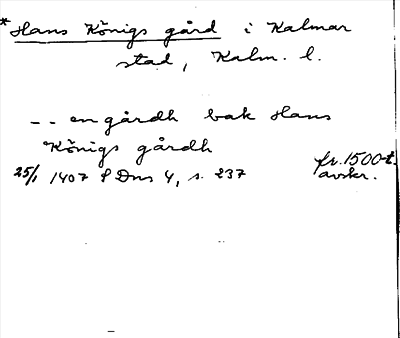 *Hans Königs gård i Kalmar
stad, Kalm. l.
-- en gårdh bak Hans
Königs gårdh
25/1 1407 SDns 4, s. 237
fr. 1500-t.
avskr.